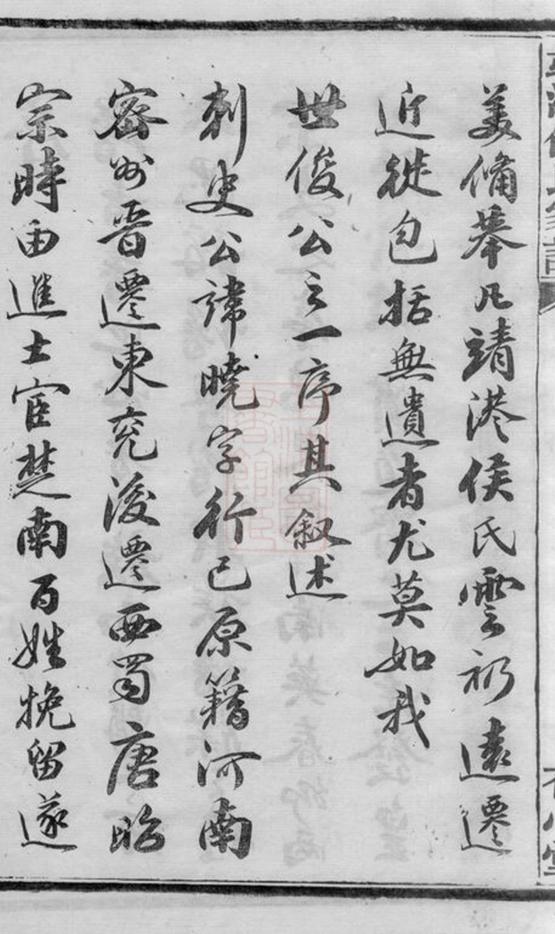 美備舉凡靖港侯氏雲礽遠遷
近徙包括無遺者尤莫如我
世俊公之一序其叙述
刺史公諱曉字行已原籍河南
密州晉遷東兖浚遷西蜀唐昭
宗時由進士宦楚南百姓挽留遂